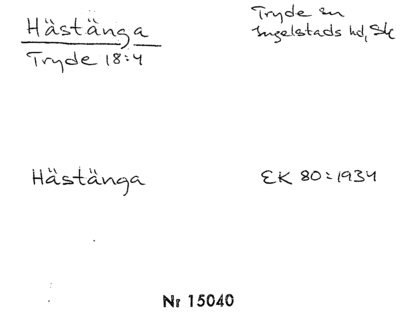 Hästänga
Tryde 18:4
Tryde sn
Ingelstads hd, Sk
Hästänga
EK 80:1934
Nr 15040